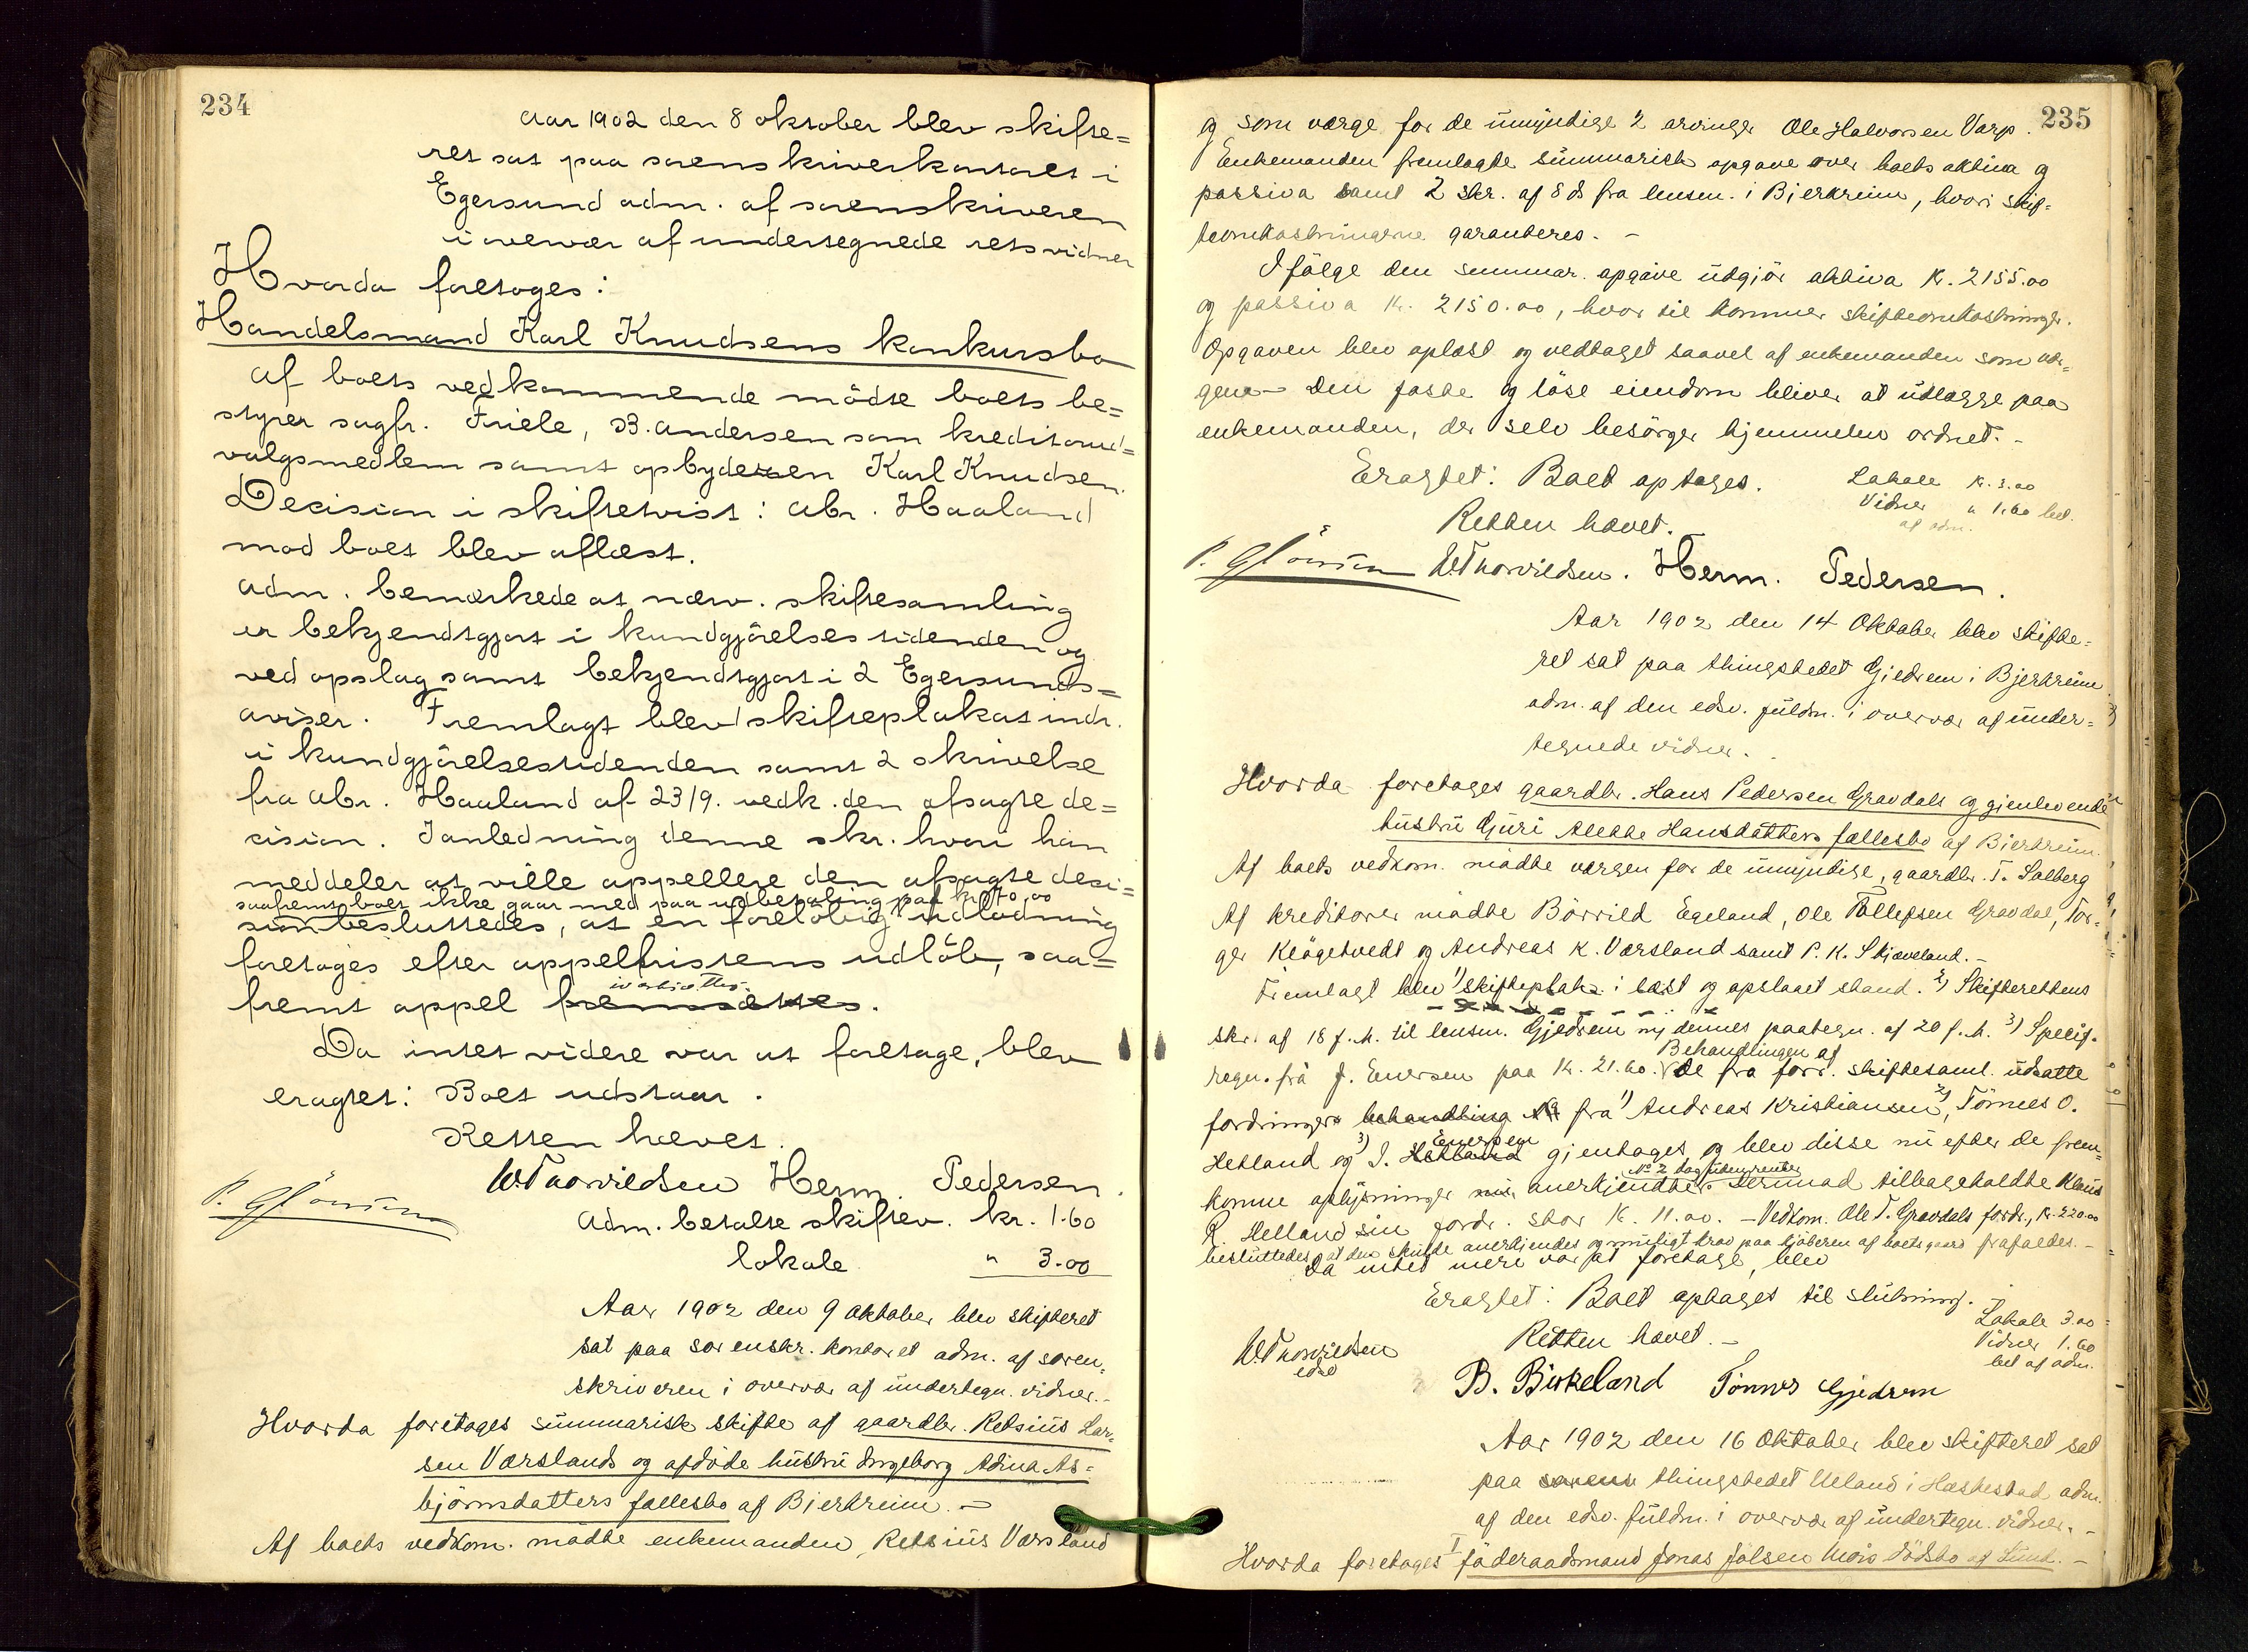 234
Aar 1902 den 8 oktober blev skifte=
ret sat paa sorenskriverkontoret i
Egersund adm. af sorenskriveren
i overvær af undertegnede retsvidner
Hvorda foretoges:
Handelsmand Karl Knudsens konkursbo
Af boets vedkommende mödte boets be=
styrer sagfr. Friele, B. Andersen som kreditorud=
valgsmedlem samt opbyderen Karl Knudsen.
Decision i skiftetvist: Abr. Haaland
mod boet blev aflæst.
Adm. bemærkede at nærv. skiftesamling
er bekjendtgjort i kundgjörelsestidenden og
ved opslag samt bekjendtgjort i 2 Egersunds=
aviser. Fremlagt blev skifteplakat indr.
i kundgjörelsestidenden samt 2 skrivelse
fra Abr. Haaland af 23/9. vedk. den afsagte de=
cision. I anledning denne skr. hvori han
meddeler at ville appellere den afsagte deci=
saafremt boet ikke gaar med paa udbetaling paa kr. 70,00
sion besluttedes, at en foreløbig udlodning
foretages efter appelfristens udlöb, saa=
iværksættes
fremt appel fremsættes.
Da intet videre var at foretage, blev
eragtet: Boet udstaar.
Retten hævet.
W. Thorvildsen Herm. Pedersen.
Adm. betalte skiftev. kr. 1.60
lokale " 3.00
Aar 1902 den 9 Oktober blev skifteret
sat paa sorenskr. kontoret adm. af soren-
skriveren i overvær af undertegn. vidner.-
Hvorda foretages summarisk skifte af gaardbr. Retsius Lar-
sen Værslands og afdöde hustru Ingeborg Adina As=
björnsdatters fællesbo af Bjerkreim. -
Af boets vedkom. mödte enkemanden, Retsius Værsland
235
og som værge for de umyndige 2 arvinger Ole Halvorsen Varp.
Enkemanden fremlagde summarisk opgave over boets aktiva og
passiva samt 2 skr. af 8 ds fra lensm. i Bjerkreim, hvori skif=
teomkostningerne garanteres. -
Ifölge den summar. opgave udgjör aktiva kr. 2155.00
og passiva kr. 2150.00, hvor til kommer skifteomkostninger.
Opgaven blev oplæst og vedtaget saavel af enkemanden som vær-
gen. - Den faste og löse eiendom bliver at udlægge paa
enkemanden, der selv besörger hjemmelen ordnet. -
Eragtet: Boet optages.
Lokale kr. 3.00
Vidner " 1.60 bet.
af adm.
Retten hævet.
W. Thorvildsen. Herm. Pedersen.
Aar 1902 den 14 Oktober blev skifte-
ret sat paa thingstedet Gjedrem i Bjerkreim
adm. af den edsv. fuldm. i overvær af under-
tegnede vidner.
Hvorda foretages gaardbr. Hans Pedersen Gravdals og gjenlevende
hustru Guri Alette Hansdatters fællesbo af Bjerkreim.
Af boets vedkom. mödte værgen for de umyndige, gaardbr. T. Salberg
Af kreditorer mödte Börrild Egeland, Ole Tollefsen Gravdal, Tor-
ger Klögetvedt og Andreas K. Værsland samt P. K. Skjæveland. -
Fremlagt blev 1) skifteplak. i læst og opslaaet stand. 2) Skifterettens
skr. af 18 f. m. til lensm. Gjedrem m/ dennes paategn. af 20 f. m. 3) Specif.
Behandlingen af
regn. fra J. Enersen paa kr. 21.60. de fra forr. skiftesaml. udsatte
fordringer behandling fra 1) Andreas Kristiansen, 2) Tönnes O.
Enersen
Helland og 3) I. Helland gjentages og blev disse nu efter de frem-
No 2 dog uden renter
komne oplysninger anerkjendte. Derimod tilbageholdte Klaus
R. Helland sin fordr. stor kr. 11.00. - Vedkom. Ole T. Gravdals fordr., kr. 220.00
besluttedes, at den skulde anerkjendes og muligt krav paa kjöberen af boets gaard frafaldes. -
Da intet mere var at foretage, blev
Eragtet: Boet optages til slutning. -
Lokale 3.00
Vidner 1.60
bet af adm.
Retten hævet. -
W. Thorvildsen
edsv
B. Birkeland Tönnes Gjedrem
Aar 1902 den 16 Oktober blev skifteret sat
paa sorens thingstedet Ueland i Heskestad adm.
af den edsv. fuldm. i overvær af undertegn. vidner. -
Hvorda foretages I föderaadsmand Jonas Jölsen Mois dödsbo af Lund. -